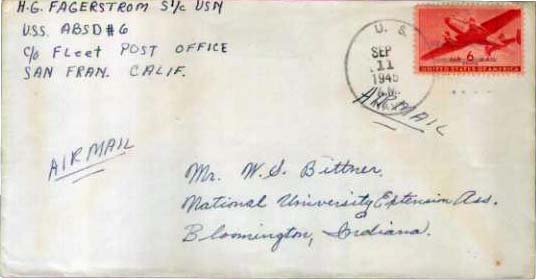 H.G. FAGERSTROM S1/c USN
USS. ABSD #6
C/o FLEET POST OFFICE
SAN FRAN. CALIF.
U. S.
SEP
11
1945
A.M.
AIR MAIL
6¢
UNITED STATES OF AMERICA
AIR MAIL
AIR MAIL
Mr. W. S. Bittner
National University Extension Ass.
Bloomington, Indiana.